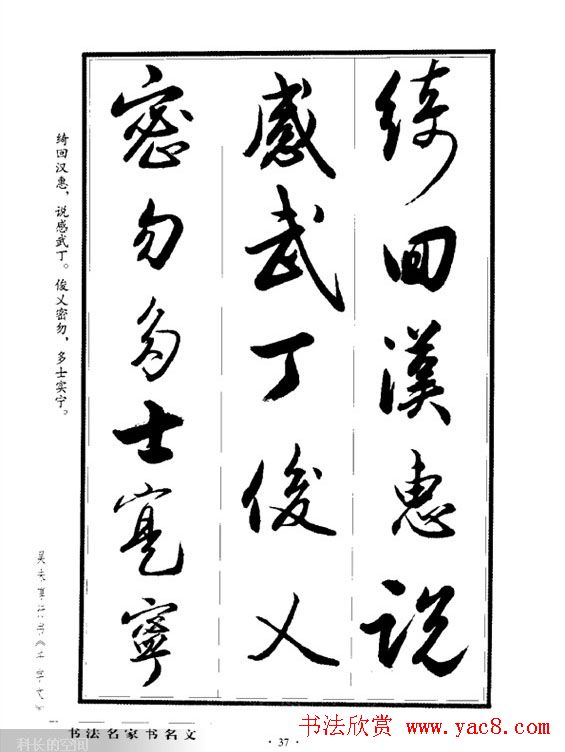 綺回漢惠説
感武丁俊乂
密勿多士寔寧
绮回汉惠，说感武丁。俊乂密勿，多士实宁。
书法名家书名文
科长的空间
· 37 ·
书法欣赏 www.yac8.com